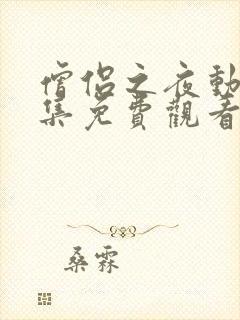 僧侶之夜動
集免費觀看
桑霖